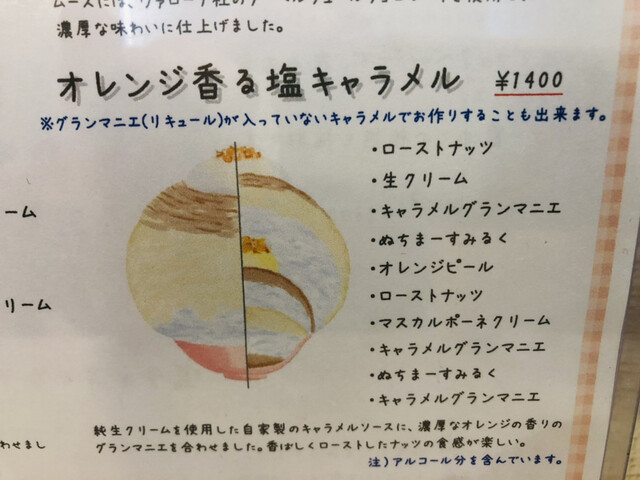 濃厚な味わいに仕上げました。
オレンジ香る塩キャラメル ¥1400
※グランマニエ(リキュール)が入っていないキャラメルでお作りすることも出来ます。
・ローストナッツ
・生クリーム
・キャラメルグランマニエ
・ぬちまーすみるく
・オレンジピール
・ローストナッツ
・マスカルポーネクリーム
・キャラメルグランマニエ
・ぬちまーすみるく
・キャラメルグランマニエ
ーム
リーム
純生クリームを使用した自家製のキャラメルソースに、濃厚なオレンジの香りの
グランマニエを合わせました。香ばしくローストしたナッツの食感が楽しい。
わせまし
注)アルコール分を含んでいます。